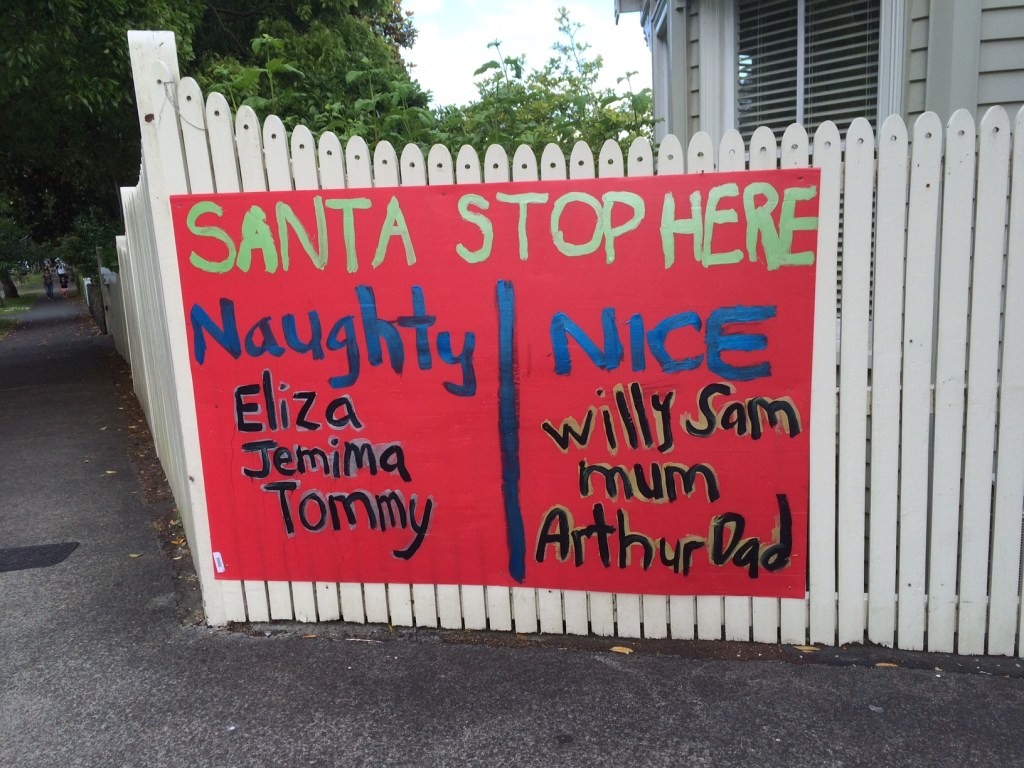 SANTA STOP HERE
Naughty
Eliza
Jemima
Tommy
NICE
Willy Sam
mum
Arthur Dad